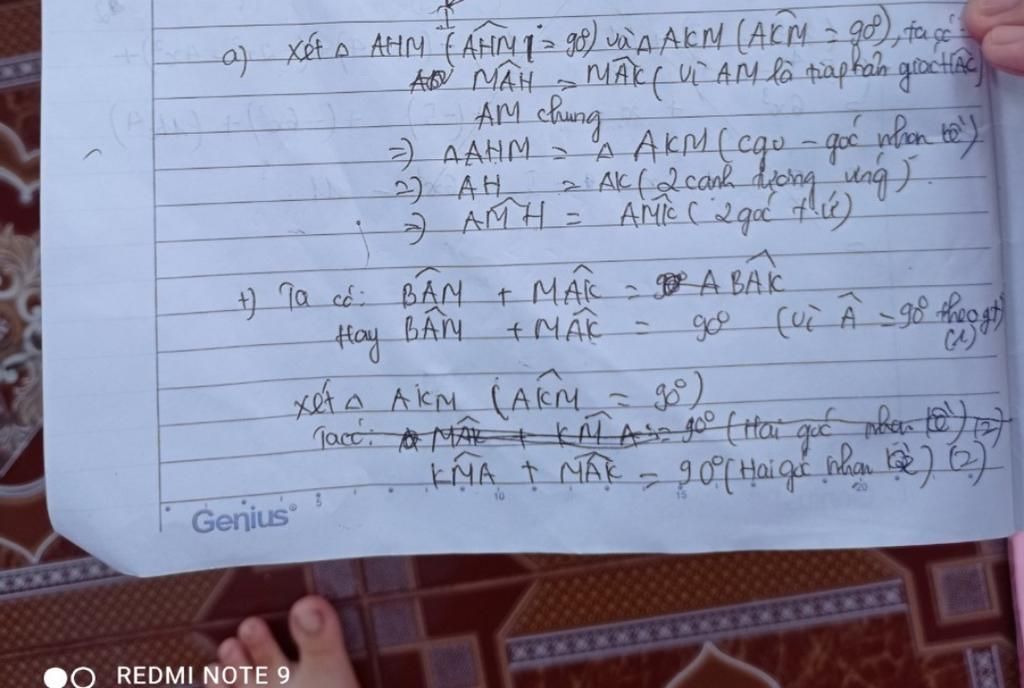 a) Xét △ AHM (AĤM = 90°) và △ AKM (AK̂M = 90°), ta có
MÂH = MÂK (Vì AM là tia phân giác HÂC)
AM chung
=) △AHM = △ AKM (cgv - góc nhọn kề)
=) AH = AK (2 cạnh tương ứng).
=) AM̂H = AM̂K (2 góc t. ứ)
+) Ta có: BÂM + MÂK = BÂK
Hay BÂM + MÂK = 90° (Vì Â = 90° theo gt)
(1)
xét △ AKM (AK̂M = 90°)
Tacó: MÂK + KM̂A = 90° (Hai góc nhọn kề) (2)
KM̂A + MÂK = 90° (Hai góc nhọn kề) (2)
5 10 15 20
Genius
REDMI NOTE 9